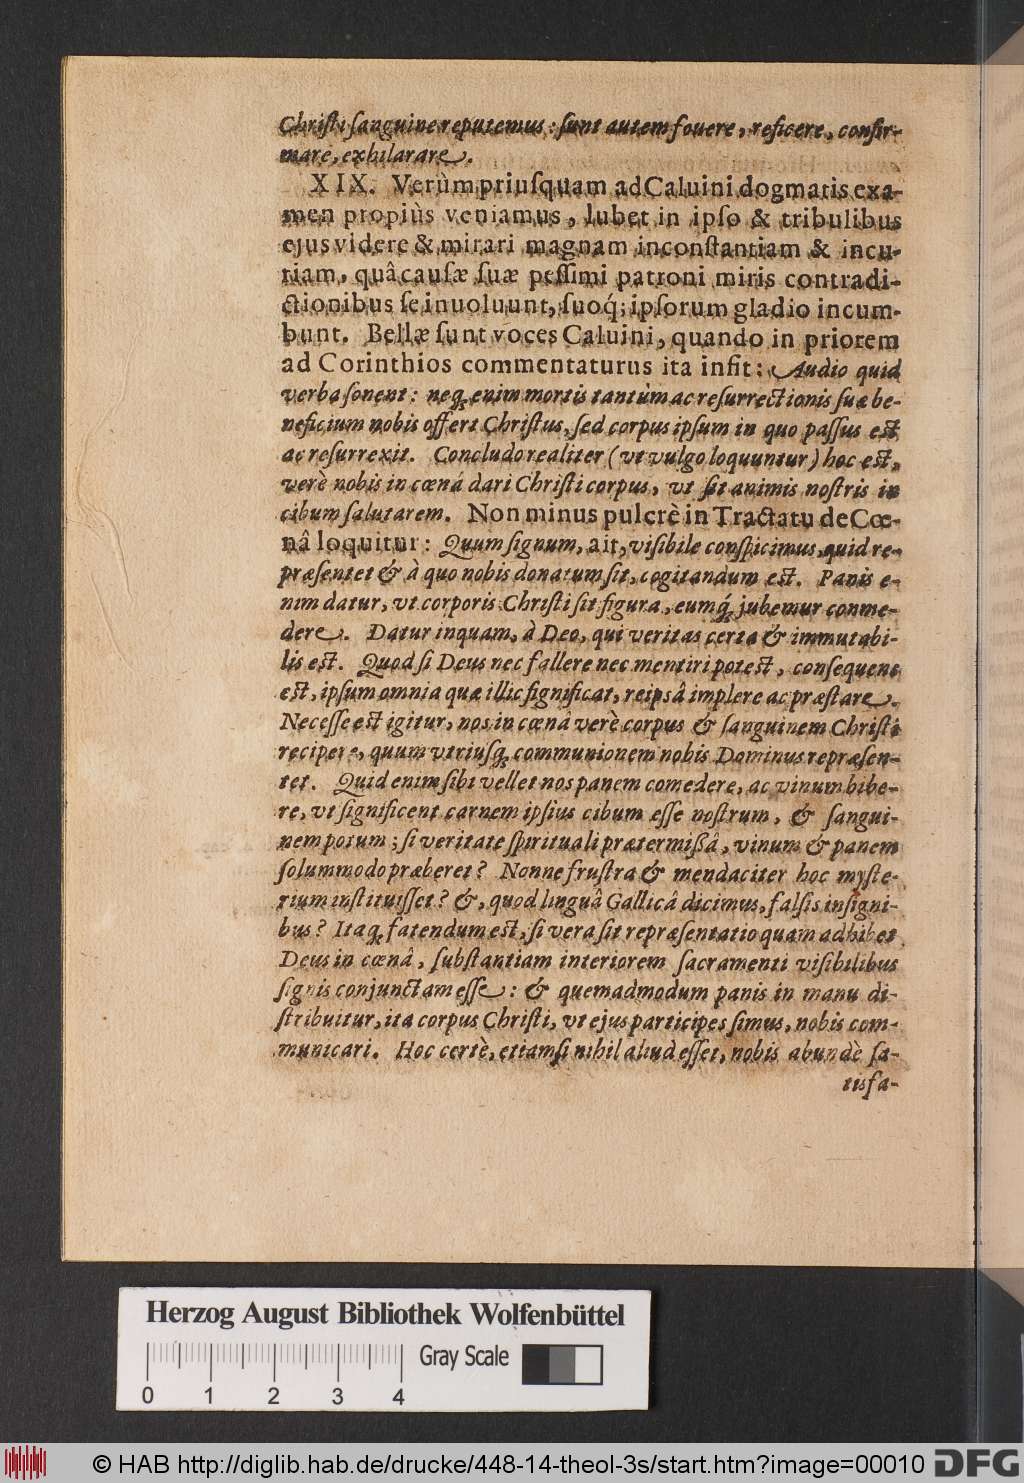 Chriſti ſanguine reputemus: ſunt autem fouere, reficere, confir-
mare, exhilarare.
XIX. Verùm priuſquam ad Caluini dogmatis exa-
men propiùs veniamus, lubet in ipſo & tribulibus
ejus videre & mirari magnam inconſtantiam & incu-
riam, quâ cauſæ ſuæ peſſimi patroni miris contradi-
ctionibus ſe inuoluunt, ſuoq́; ipſorum gladio incum-
bunt. Bellæ ſunt voces Caluini, quando in priorem
ad Corinthios commentaturus ita infit: Audio quid
verba ſonent: neq; enim mortis tantùm ac reſurrectionis ſuæ be-
neficium nobis offert Chriſtus, ſed corpus ipſum in quo paſſus est
ac reſurrexit. Concludo realiter (vt vulgo loquuntur) hoc est,
verè nobis in cœnâ dari Chriſti corpus, vt ſit animis noſtris in
cibum ſalutarem. Non minus pulcrè in Tractatu de Cœ-
nâ loquitur: Quum ſignum, ait, viſibile conſpicimus, quid re-
præſentet & à quo nobis donatum ſit, cogitandum est. Panis e-
nim datur, vt corporis Chriſti ſit figura, eumq́; jubemur comme-
dere. Datur inquam, à Deo, qui veritas certa & immutabi-
lis est. Quod ſi Deus nec fallere nec mentiri potest, conſequens
est, ipſum omnia quæ illic ſignificat, reipsâ implere ac præſtare.
Neceſſe est igitur, nos in cœnâ verè corpus & ſanguinem Chriſti
recipere, quum vtriuſq; communionem nobis Dominus repræſen-
tet. Quid enim ſibi vellet nos panem comedere, ac vinum bibe-
re, vt ſignificent carnem ipſius cibum eſſe noſtrum, & ſangui-
nem potum; ſi veritate ſpirituali prætermißâ, vinum & panem
ſolummodo præberet? Nonne fruſtra & mendaciter hoc myſte-
rium inſtituiſſet? &, quod linguâ Gallicâ dicimus, falſis inſigni-
bus? Itaq; fatendum est, ſi vera ſit repræſentatio quam adhibet
Deus in cœnâ, ſubſtantiam interiorem ſacramenti viſibilibus
ſignis conjunctam eſſe: & quemadmodum panis in manu di-
ſtribuitur, ita corpus Chriſti, vt ejus participes ſimus, nobis com-
municari. Hoc certè, etiamſi nihil aliud eſſet, nobis abundè ſa-
tisfa-
Herzog August Bibliothek Wolfenbüttel
Gray Scale
0 1 2 3 4
© HAB http://diglib.hab.de/drucke/448-14-theol-3s/start.htm?image=00010
DFG